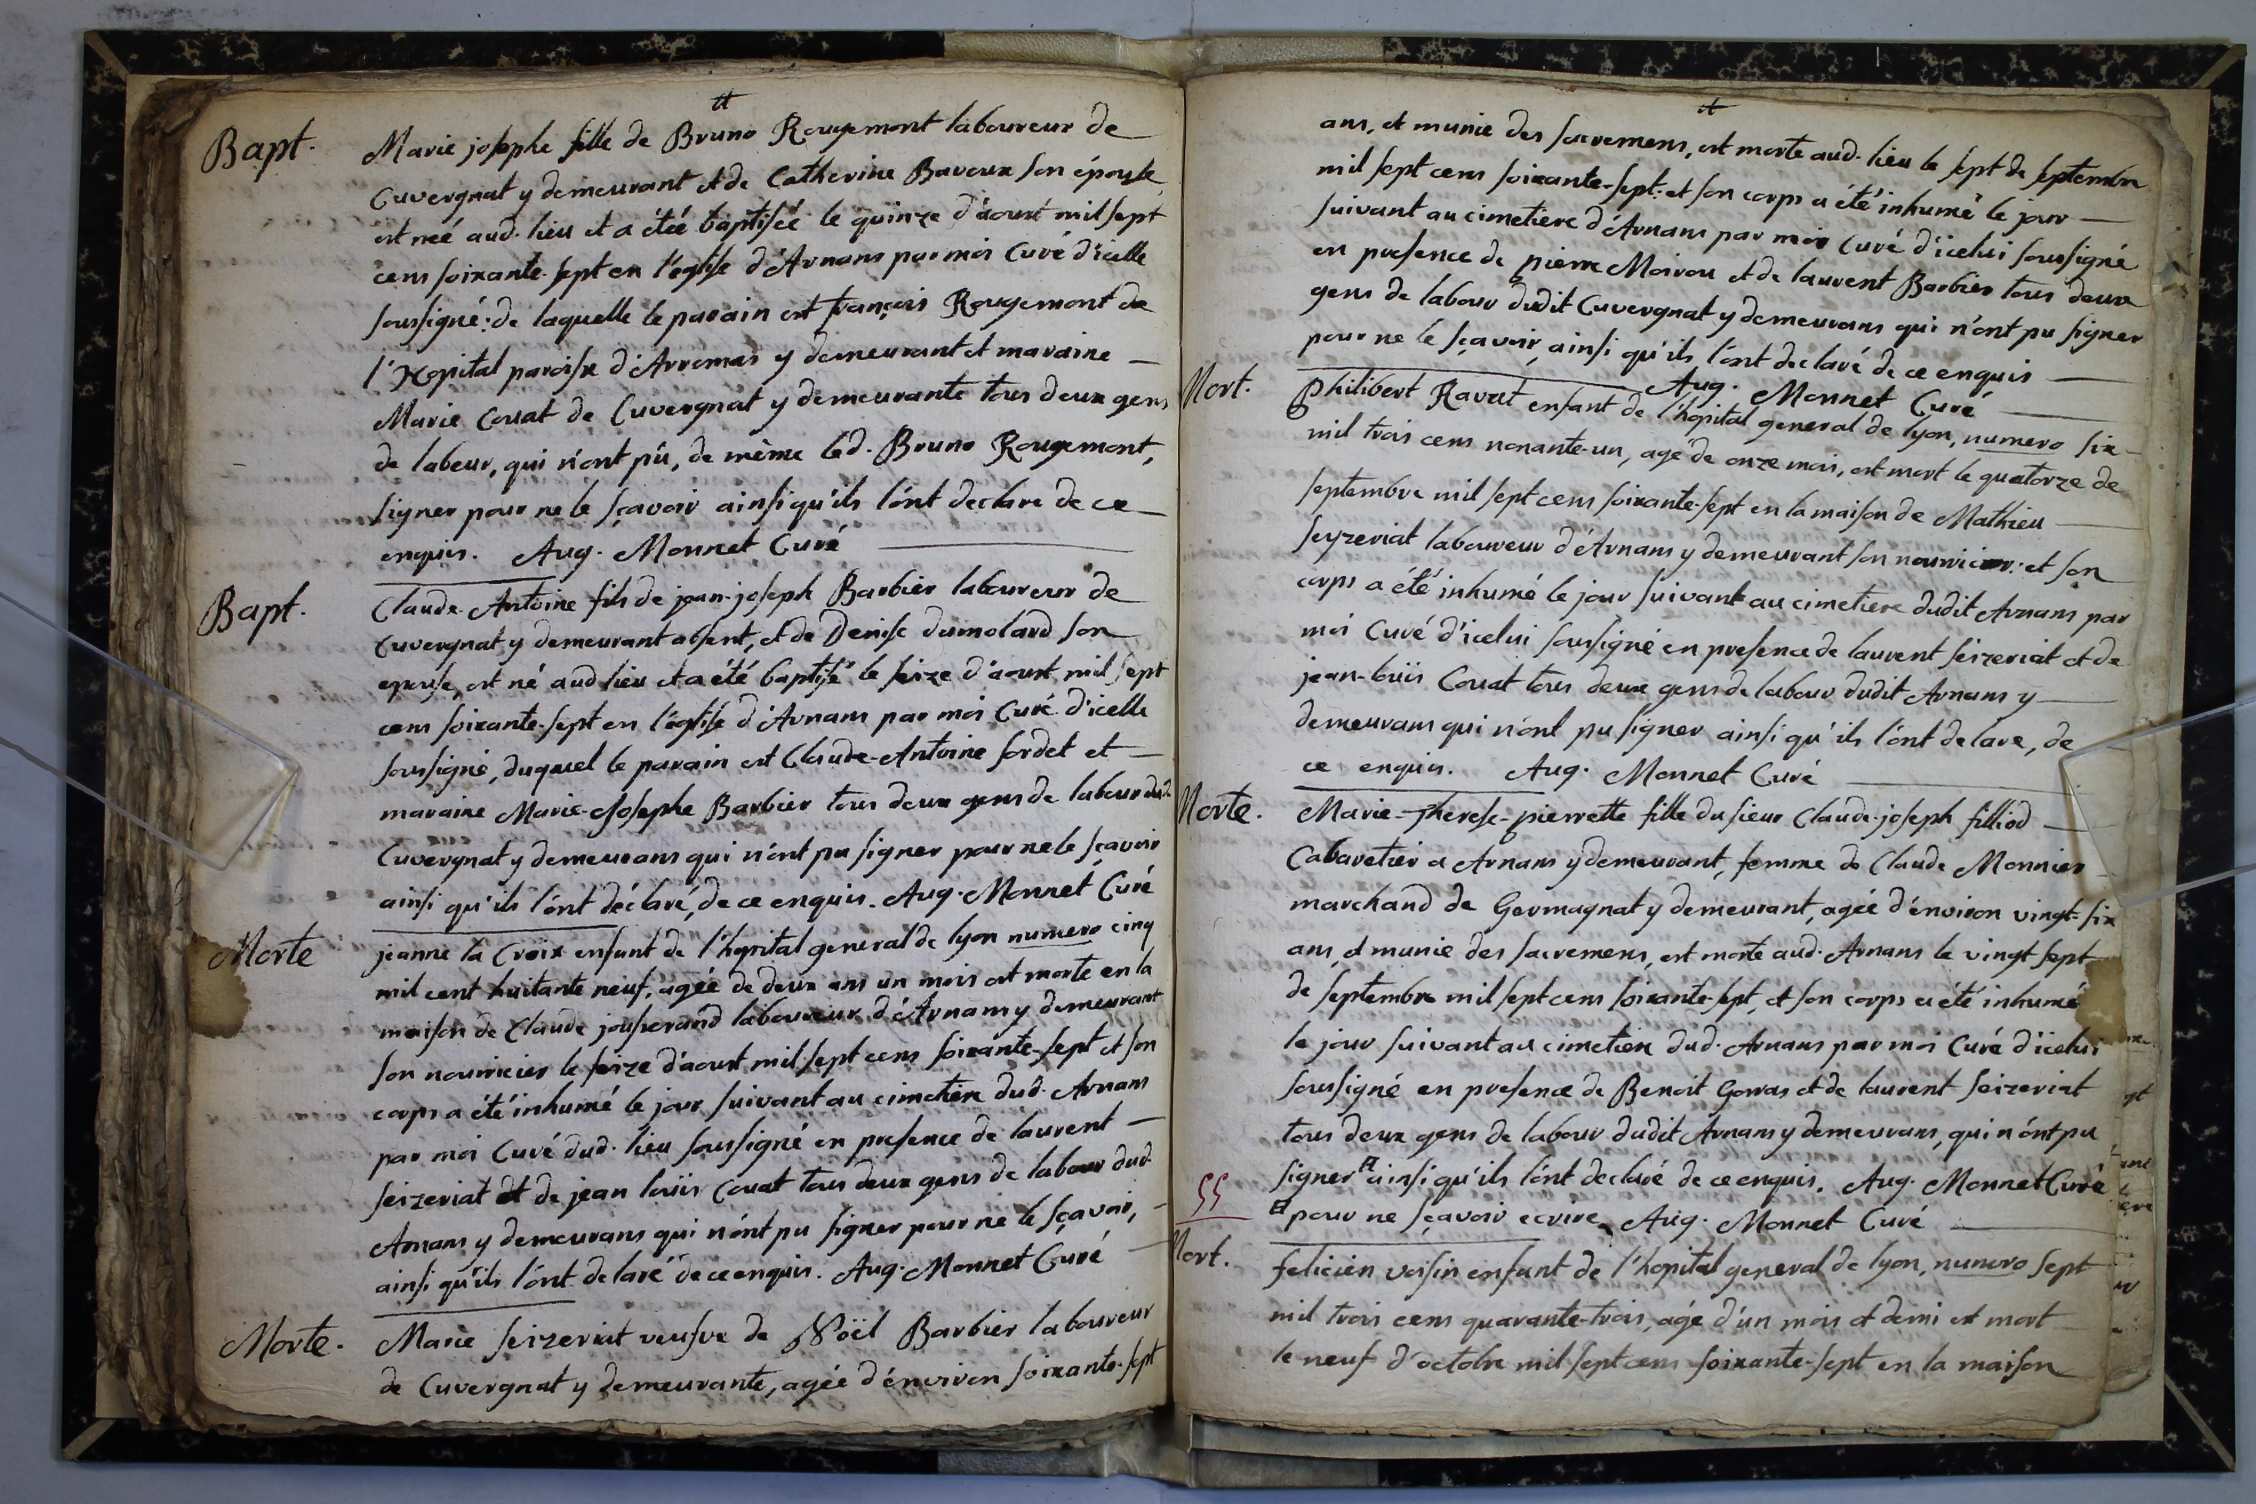 Bapt.
Marie josephe fille de Bruno Rougemont laboureur de
Cuvergnat y demeurant et de Catherine Bavoux son épouse
est neé aud. lieu et a étée baptisée le quinze d'aoust mil sept
cens soixante-sept en l'église d'Arnans par moi Curé d'icelle
soussigné: de laquelle le parain est françois Rougemont de
l'Hopital paroisse d'Arromas y demeurant et maraine
Marie Couat de Cuvergnat y demeurante tous deux gens
de labeur, qui n'ont pû, de même led. Bruno Rougemont,
signer pour ne le sçavoir ainsi qu'ils l'ont declare de ce
enquis. Aug. Monnet Curé
Bapt.
Claude-Antoine fils de jean-joseph Barbier laboureur de
Cuvergnat y demeurant absent, et de Denise dumolard son
epouse, est né aud lieu et a été baptisé le seize d'aoust mil sept
cens soixante-sept en l'église d'Arnans par moi Curé d'icelle
soussigné, duquel le parain est Claude-Antoine sordet et
maraine Marie-Josephe Barbier tous deux gens de labeur dud.
Cuvergnat y demeurans qui n'ont pu signer pour ne le sçavoir
ainsi qu'ils l'ont déclaré, de ce enquis. Aug. Monnet Curé
Morte
jeanne la Croix enfant de l'hopital general de lyon numero cinq
mil cent huitante neuf, agée de deux ans un mois est morte en la
maison de Claude jouserand laboureur d'Arnans y demeurant
son nourricier le seize d'aoust mil sept cens soixante-sept et son
corps a été inhumé le jour suivant au cimetiere dud. Arnans
par moi Curé dud. lieu soussigné en presence de laurent
seizeriat et de jean louis Couat tous deux gens de labour dud.
Arnans y demeurans qui n'ont pu signer pour ne le sçavoir,
ainsi qu'ils l'ont delaré de ce enquis. Aug. Monnet Curé
Morte.
Marie seizeriat veusve de Noël Barbier laboureur
de Cuvergnat y demeurante, agée d'environ soixante-sept
ans, et munie des sacremens, est morte aud. lieu le sept de septembre
mil sept cens soixante-sept: et son corps a été inhumé le jour
suivant au cimetiere d'Arnans par moi Curé d'icelui soussigné
en presence de pierre Moirou et de laurent Barbier tous deux
gens de labour dudit Cuvergnat y demeurans qui n'ont pu signer
pour ne le sçavoir ainsi qu'ils l'ont declaré de ce enquis
Aug. Monnet Curé
Mort.
Philibert Ravat enfant de l'hopital general de lyon, numero six
mil trois cens nonante-un, agé de onze mois, est mort le quatorze de
septembre mil sept cens soixante-sept en la maison de Mathieu
seyzeriat laboureur d'Arnans y demeurant son nourricier: et son
corps a été inhumé le jour suivant au cimetiere dudit Arnans par
moi Curé d'icelui soussigné en presence de laurent seizeriat et de
jean-louis Couat tous deux gens de labour dudit Arnans y
demeurans qui n'ont pu signer ainsi qu'ils l'ont delare, de
ce enquis. Aug. Monnet Curé
Morte.
Marie-therese-pierrette fille du sieur Claude-joseph filliod
Cabaretier a Arnans y demeurant, femme de Claude Monnier
marchand de Germagnat y demeurant, agée d'environ vingt-six
ans, et munie des sacremens, est morte aud. Arnans le vingt sept
de septembre mil sept cens soixante-sept, et son corps a été inhumé
le jour suivant au cimetiere dud. Arnans par moi Curé d'icelui
soussigné en presence de Benoit Gorras et de laurent seizeriat
tous deux gens de labour dudit Arnans y demeurans, qui n'ont pu
signer ainsi qu'ils l'ont declaré de ce enquis. Aug. Monnet Curé
55
pour ne sçavoir ecrire Aug. Monnet Curé
Mort.
felicien voisin enfant de l'hopital general de lyon, numero sept
mil trois cens quarante-trois, agé d'un mois et demi est mort
le neuf d'octobre mil sept cens soixante-sept en la maison